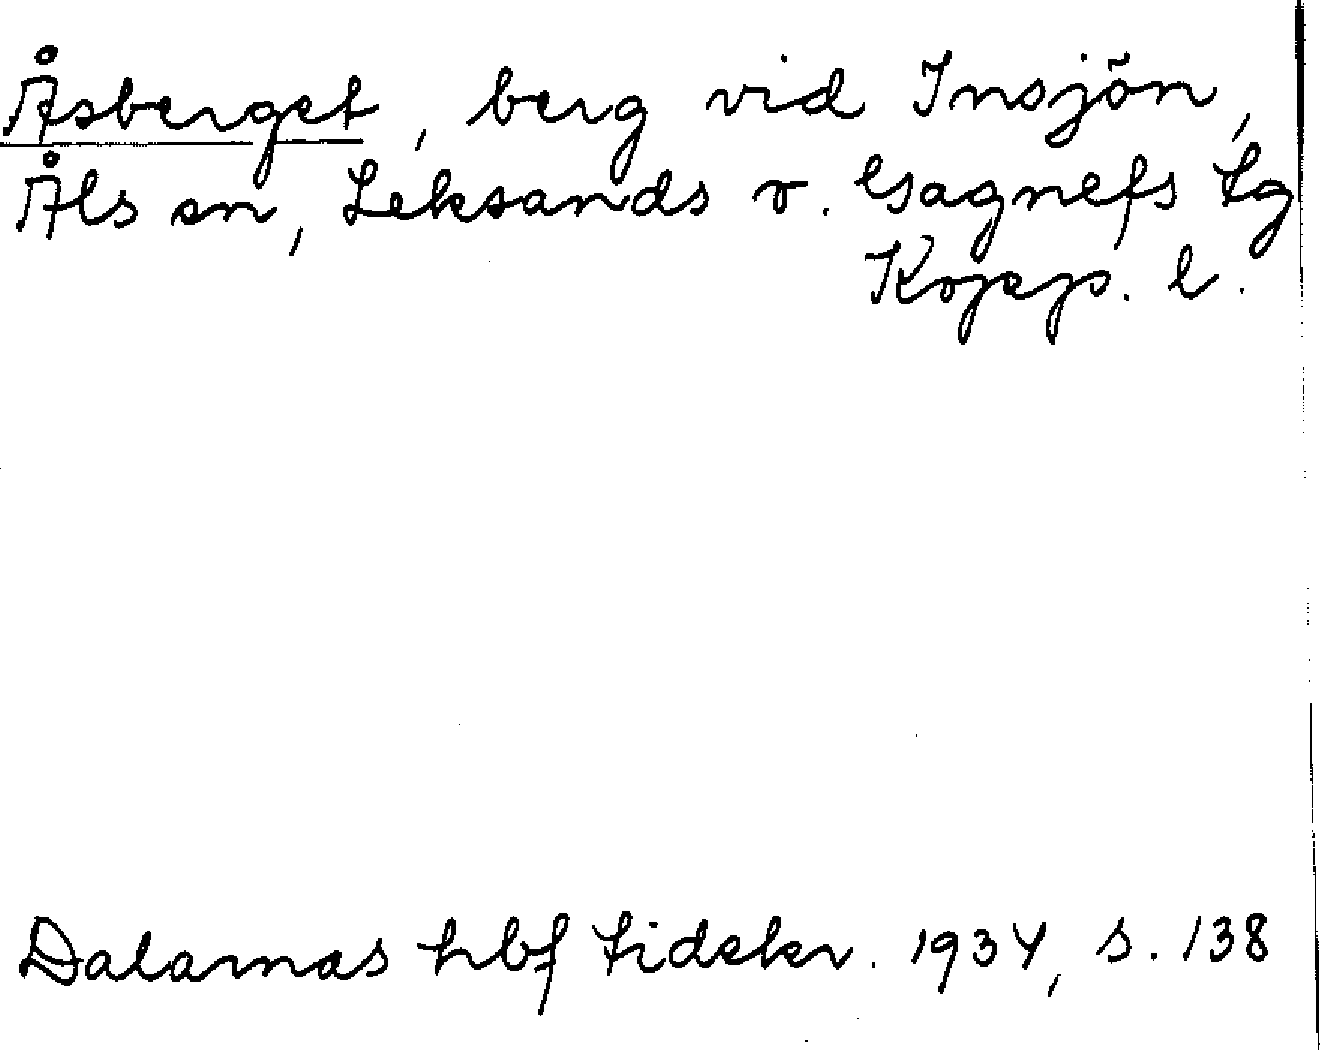 Åsberget, berg vid Insjön,
Åls sn, Leksands o. Gagnefs tg
Kopp. l.
Dalarnas hbf tidskr. 1934, s. 138